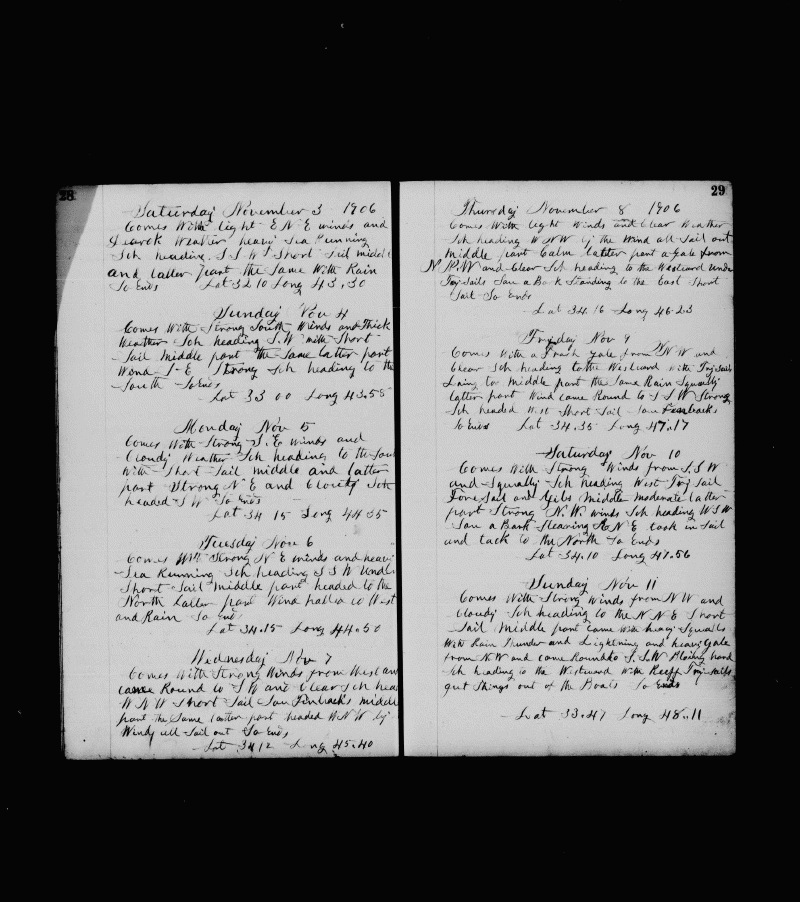 28
Saturday November 3 1906
Comes With light E N E winds and
Weather heavy Sea Running
Sch heading S S W Short Sail middle
and latter part the Same With Rain
So Ends Lat 32 10 Long 43.30
Sunday Nov 4
Comes With Strong South Winds and thick
Weather Sch heading S.W with Short
Sail middle part the Same latter part
Wind S-E Strong Sch heading to the
South So Ends
Lat 33 00 Long 43.55
Monday Nov 5
Comes With Strong S.E winds and
Cloudy Weather Sch heading to the Sout
With Short Sail middle and latter
part Strong N E and Cloudy Sch
headed S W So Ends
Lat 34 15 Long 44 35
Tuesday Nov 6
Comes With Strong N E winds and heavy
Sea Running Sch heading S S W Under
Short Sail middle part headed to the
North latter part Wind hailed to West
and Rain So Ends
Lat 34.15 Long 44.50
Wednesday Nov 7
Comes With Strong Winds from West an
came Round to S W and Clear Sch hea
W N W Short Sail Saw Finbacks middle
part the Same latter part headed W N W by
Wind all Sail out So Ends
Lat 34 12 Long 45.40
29
Thursday November 8 1906
Comes With light Winds and Clear Weather
Sch heading W N W by the Wind all Sail out
Middle part Calm latter part a gale from
N.W and Clear Sch heading to the Westward Under
Try Sails Saw a Bark Standing to the East Short
Sail So Ends
Lat 34.16 Long 46.23
Friday Nov 9
Comes With a Frash gale from N W and
Clear Sch heading to the Westward With Try Sails
Laing to middle part the Same Rain Squally
latter part Wind came Round to S S W Strong
Sch headed West Short Sail Saw Finbacks
So Ends Lat 34.35 Long 47.17
Saturday Nov 10
Comes With Strong Winds from S.S W
and Squally Sch heading West Try Sail
Fore Sail and Gibs Middle moderate latter
part Strong N.W. winds Sch heading W S W
Saw a Bark Stearing E N E took in Sail
and tack to the North So Ends
Lat 34.10 Long 47.56
Sunday Nov 11
Comes With Strong Winds from N W and
Cloudy Sch heading to the N N E Short
Sail Middle part Came With heavy Squalls
With Rain thunder and Lightning and heavy Gale
from N.W and came Round to S.S.W Bloing hard
Sch heading to the Westward With Reeff Try-Sails
gut things out of the Boats So Ends
Lat 33.47 Long 48.11